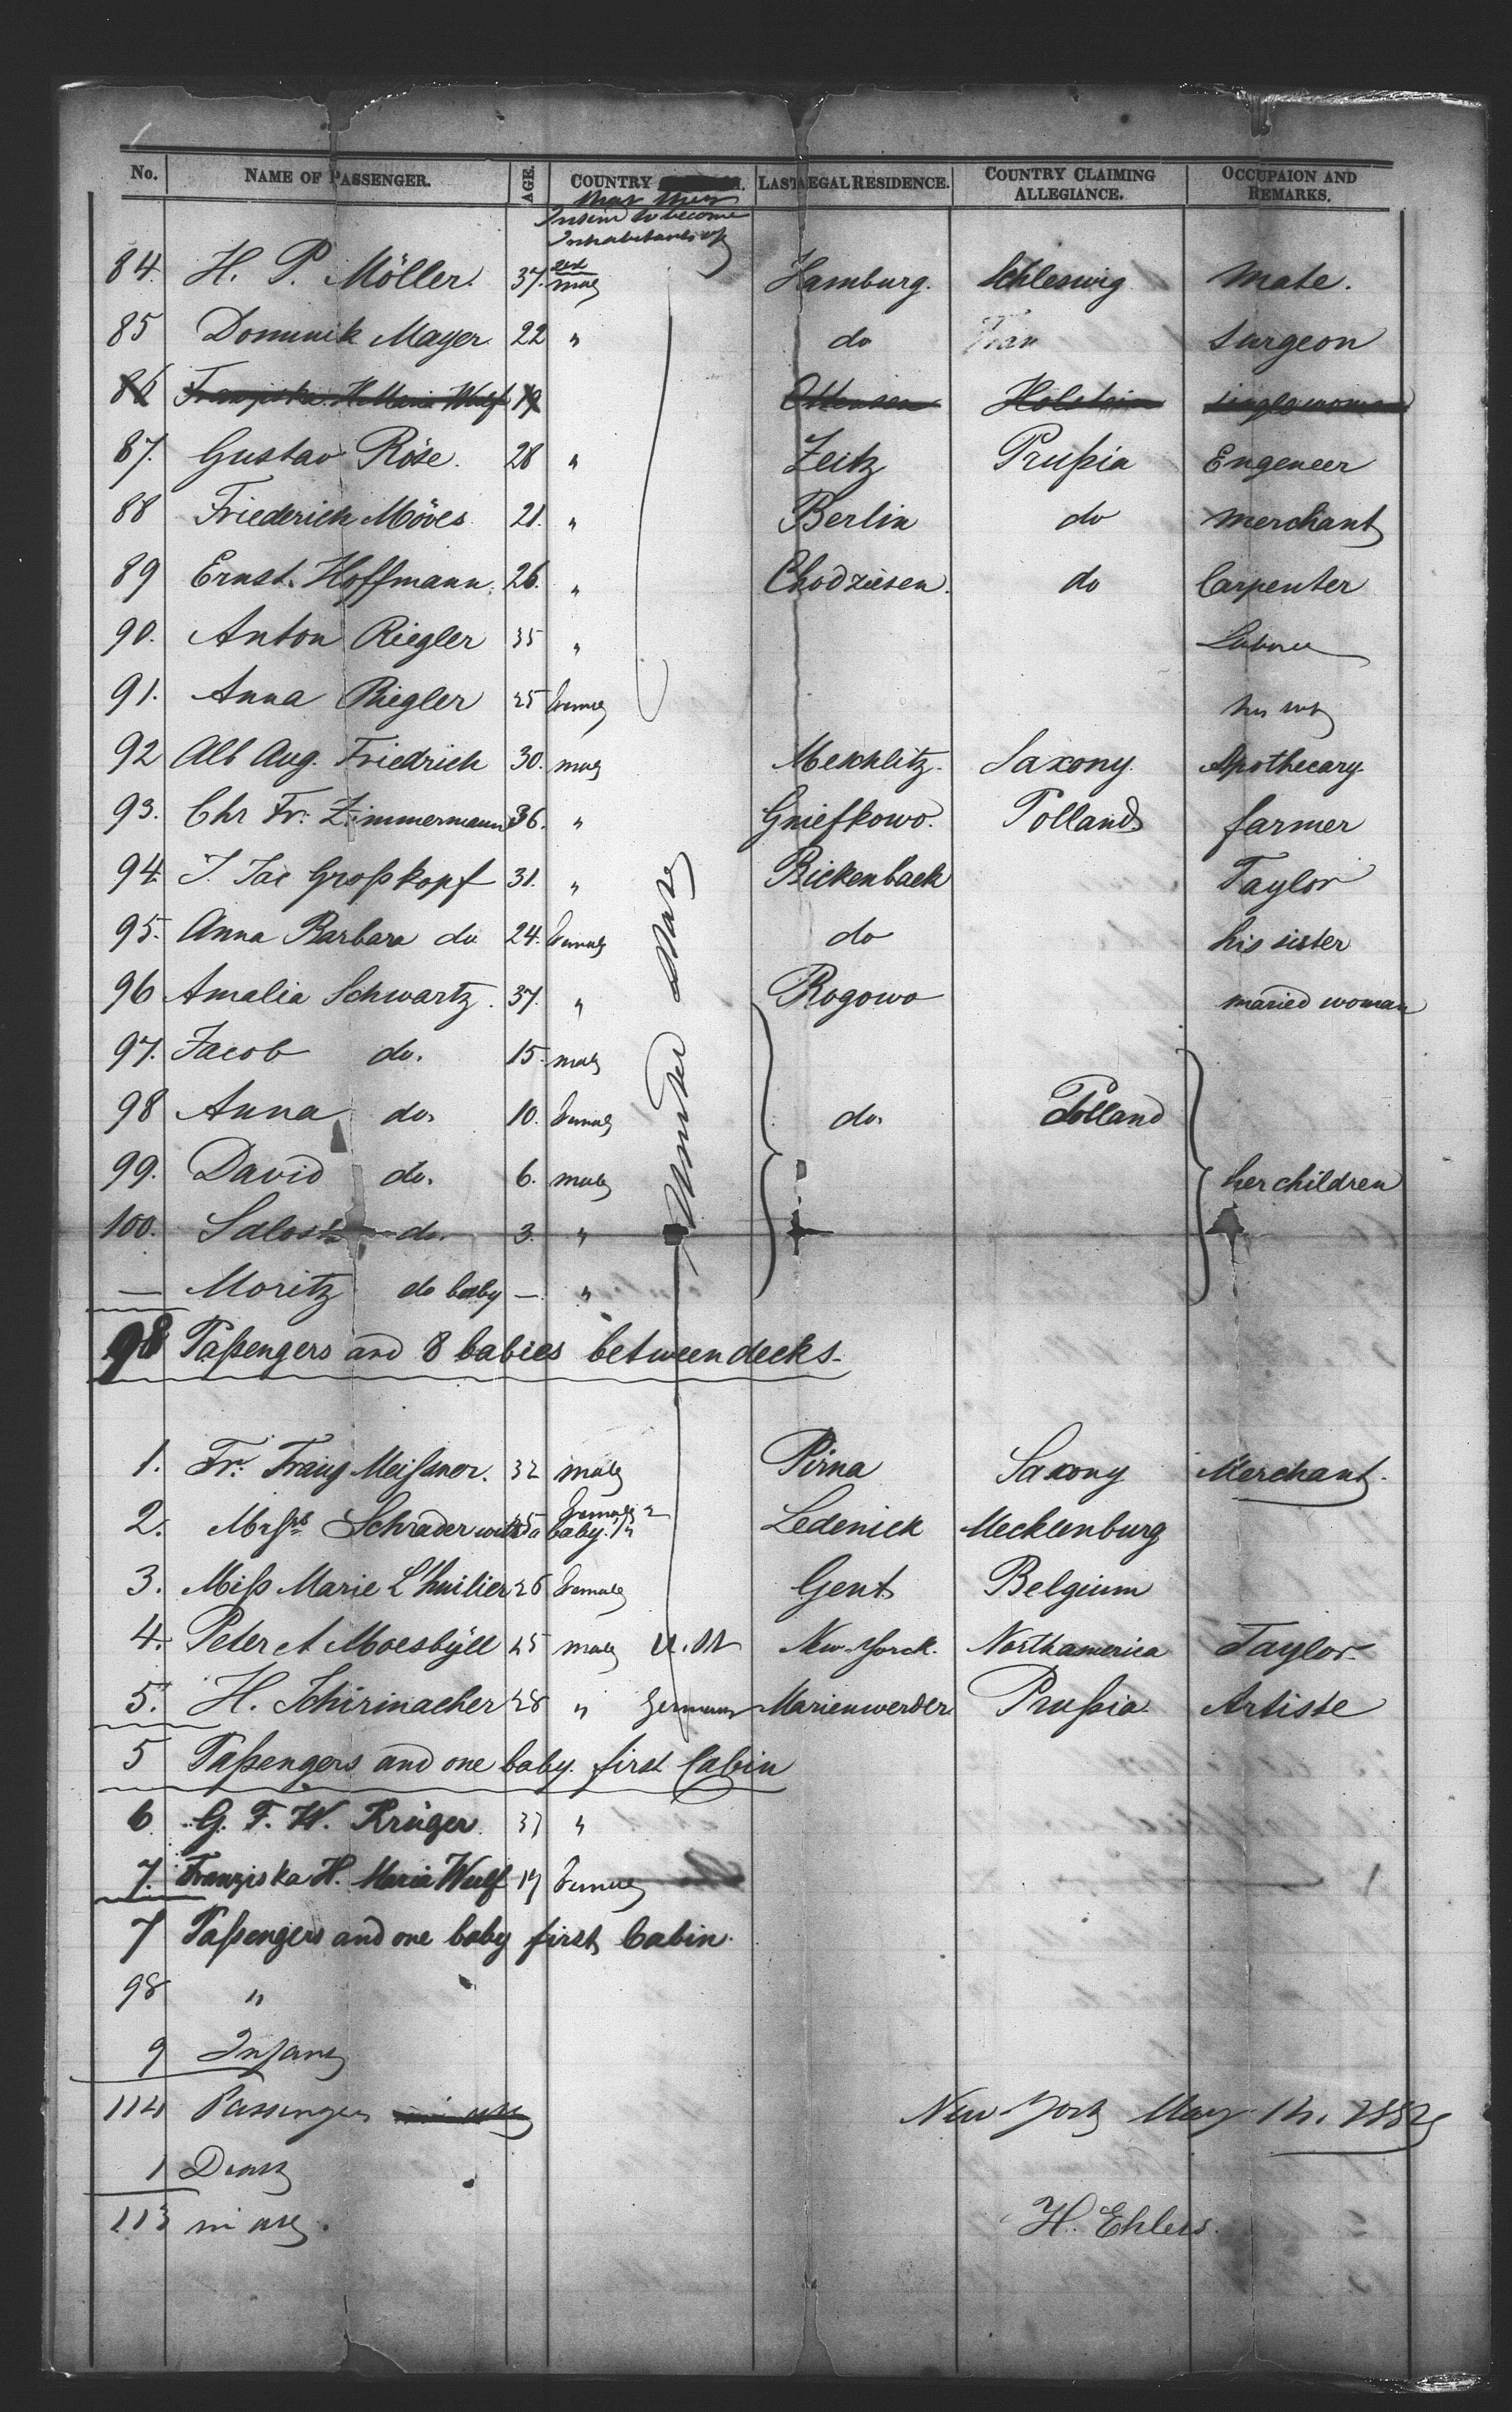 No. NAME OF PASSENGER. AGE. COUNTRY LAST LEGAL RESIDENCE. COUNTRY CLAIMING ALLEGIANCE. OCCUPAION AND REMARKS.
that they
Intend to become
Inhabitants of
sex
84. H. P. Möller. 37. male Hamburg. Schleswig Mate.
85 Dominik Mayer. 22 " do Surgeon
86 Franziska H. Maria Wulf 19 Ottensen Holstein single woman
87. Gustav Röse. 28 " Zeitz Prußia Engeneer
88 Friederich Möves 21. " Berlin do Merchant
89 Ernst. Hoffmann. 26. " Chodziesen. do Carpenter
90. Anton Riegler 35 " Laborer
91. Anna Riegler 25 female his wife
92 Alb Aug. Friedrich 30. male Mekhlitz. Saxony. Apothecary.
93. Chr Fr. Zimmermann 36. " Gniefkowo. Polland farmer
94. J. Jac Großkopf 31. " Bickenbach Taylor
95. Anna Barbara do 24. female do his sister
96 Amalia Schwartz. 37. " Rogowo maried woman
97. Jacob do. 15. male
98 Anna do. 10. female do. Polland
99. David do. 6. male her children
100. do. 3. "
— Moritz do baby — "
United States
98 Paßengers and 8 babies between decks.
1. Fr. Franz Meißner. 32 male Pirna Saxony Merchant.
2. Schrader with a baby. 25 female 2 Ledenick Mecklenburg
3. Miß Marie L'huilier 26 female Gent Belgium
4. Peter A Moesbÿll 25 male U. St New-Yorck. Northamerica Taylor.
5. H. Schirmacher 28 " Germany Marienwerder Prußia Artiste
5 Paßengers and one baby. first Cabin
6 G. F. W. Krüger. 37 "
7. Franziska H. Maria Wulf 19 female
7 Paßengers and one baby first Cabin.
98 "
9 Infants
114 Passengers
New York May 12. 1852
1 Death
113 in all.
H. Ehlers.